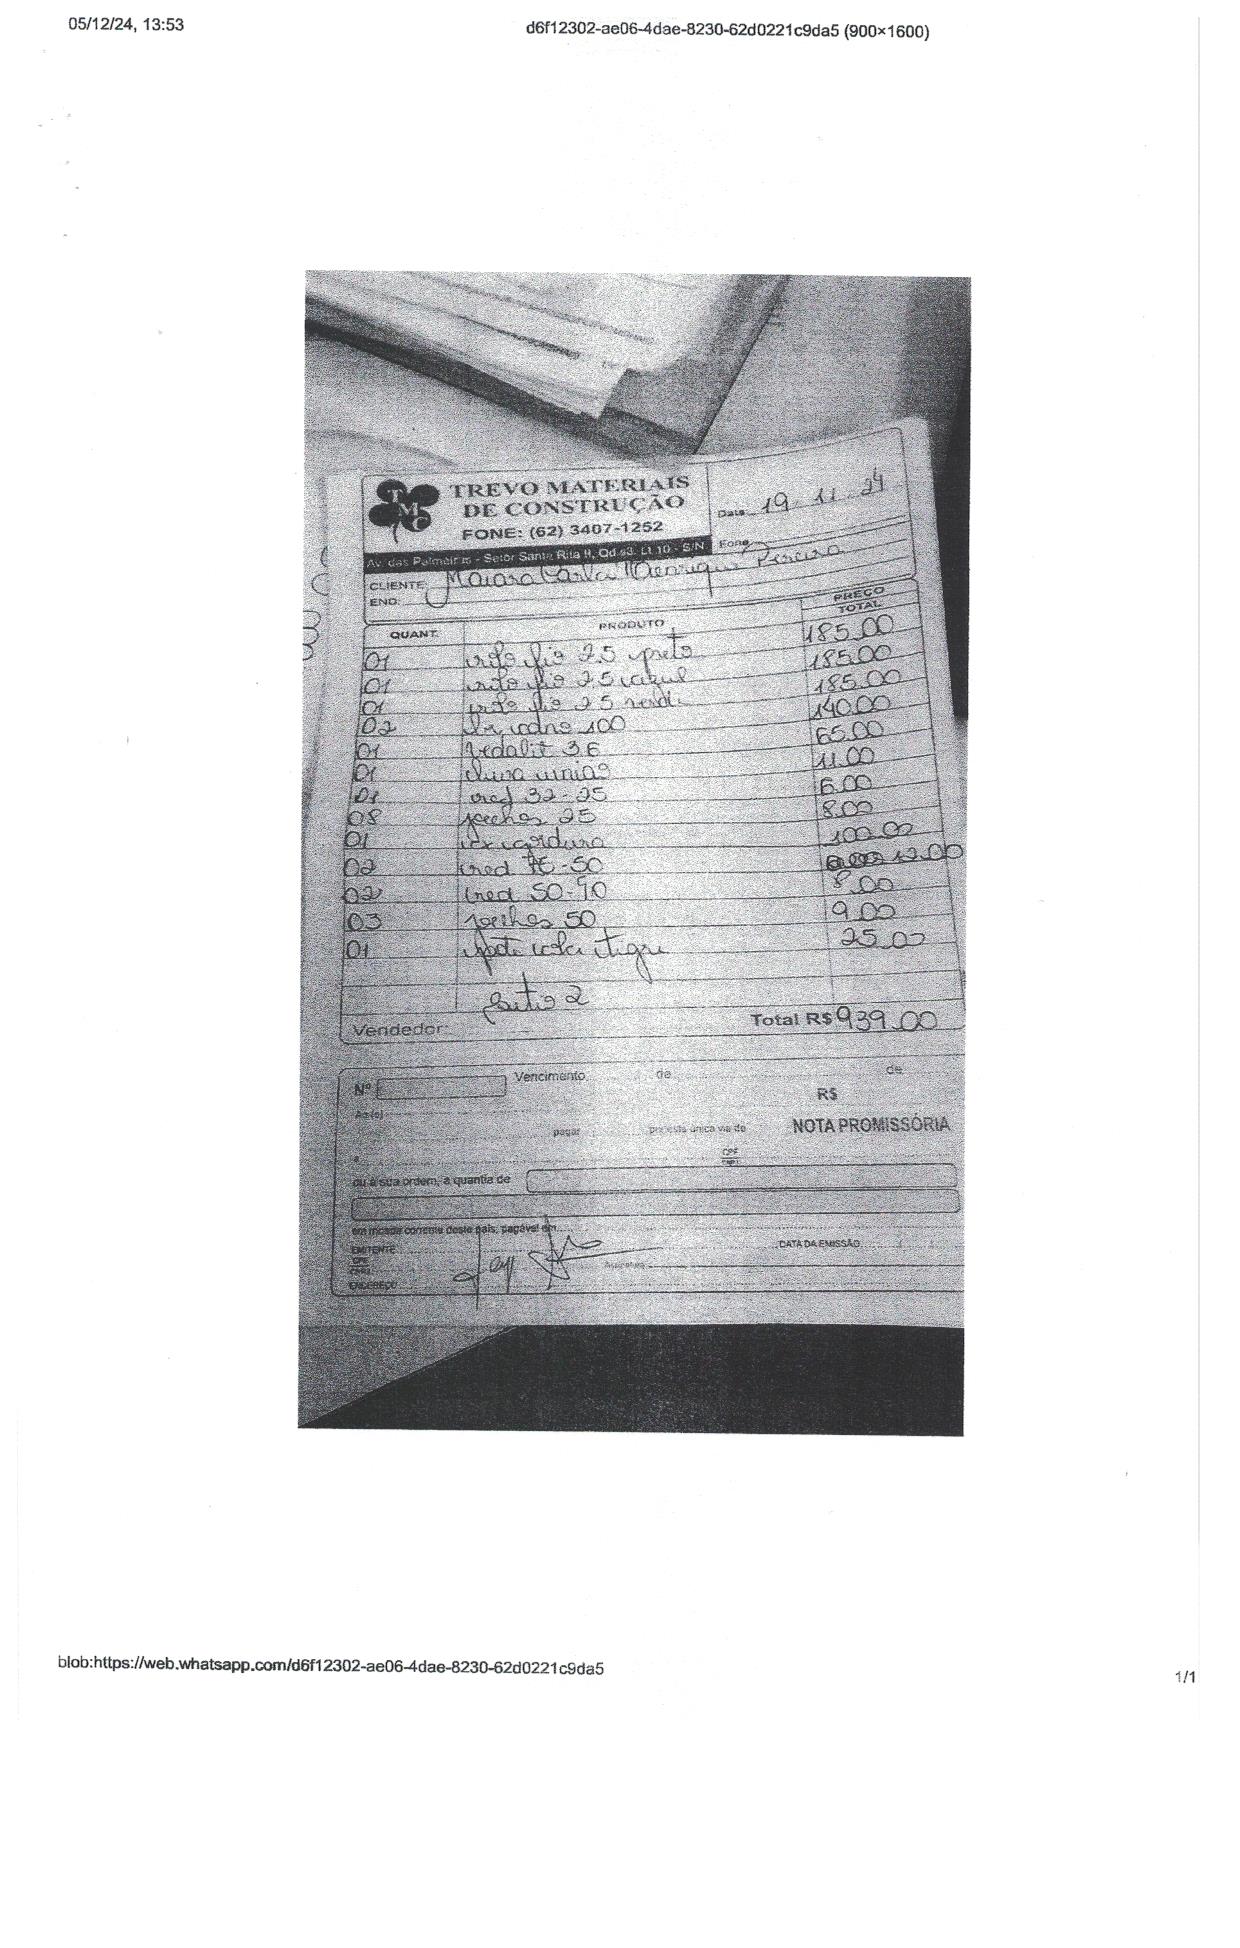 05/12/24, 13:53
d6f12302-ae06-4dae-8230-62d0221c9da5 (900×1600)
TMC
TREVO MATERIAIS
DE CONSTRUÇÃO
FONE: (62) 3407-1252
Av. das Palmeiras - Setor Santa Rita II, Qd. 43, Lt. 10 - S/N
Data 19 11 24
Fone
CLIENTE: Maiara Carla Henrique Pereira
END:
QUANT. PRODUTO PREÇO TOTAL
01 rolo fio 2.5 preto 185.00
01 rolo fio 2.5 azul 185.00
01 rolo fio 2.5 verde 185.00
02 100 140.00
01 vedalit 36 65.00
01 11.00
01 red 32-25 6.00
08 joelhos 25 8.00
01 cx gordura 100.00
02 red 75-50 12.00
02 red 50-40 8.00
03 joelhos 50 9.00
01 pote cola tigre 25.00
2
Vendedor: Total R$ 939.00
Nº Vencimento de de
R$
Ao(s)
pagar por esta única via de NOTA PROMISSÓRIA
CPF
ou à sua ordem, a quantia de
em moeda corrente deste país, pagável em
EMITENTE DATA DA EMISSÃO
Assinatura
ENDEREÇO
blob:https://web.whatsapp.com/d6f12302-ae06-4dae-8230-62d0221c9da5
1/1